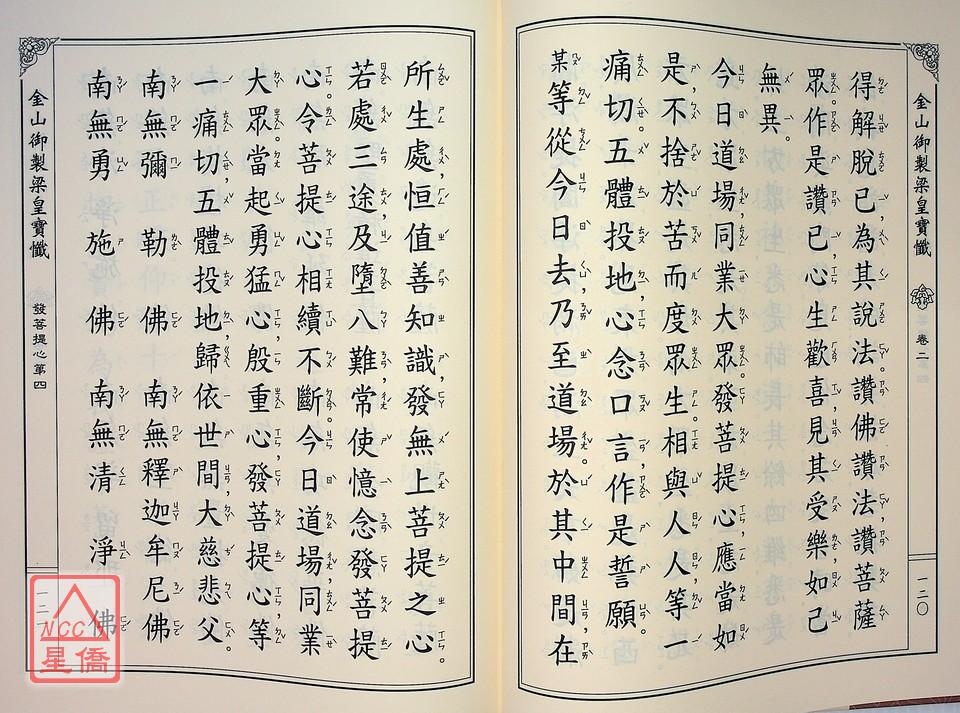 金山御製梁皇寶懺
卷二
一二〇
得解脫已為其說法。讚佛讚法，讚菩薩
眾。作是讚已，心生歡喜，見其受樂，如己
無異。
今日道場，同業大眾。發菩提心，應當如
是，不捨於苦而度眾生。相與人人，等一
痛切。五體投地，心念口言，作是誓願。
某等從今日去，乃至道場，於其中間，在
所生處，恒值善知識，發無上菩提之心。
若處三途，及墮八難，常使憶念，發菩提
心。令菩提心，相續不斷。今日道場，同業
大眾。當起勇猛心，殷重心，發菩提心，等
一痛切，五體投地，歸依世間大慈悲父。
南無彌勒佛 南無釋迦牟尼佛
南無勇施佛 南無清淨佛
金山御製梁皇寶懺
發菩提心第四
一二
NCC
星僑